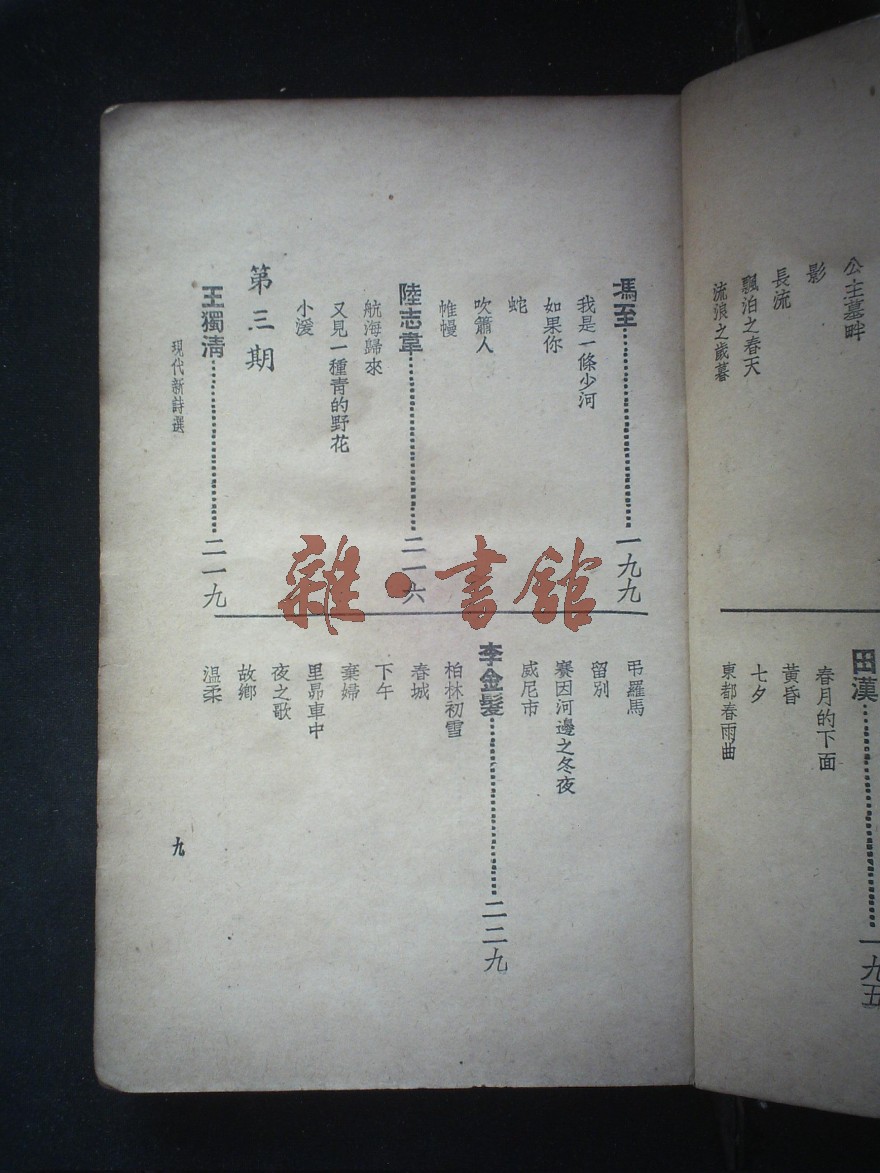 公主墓畔
影
長流
飄泊之春天
流浪之歲暮
田漢 一九五
春月的下面
黃昏
七夕
東都春雨曲
馮至 一九九
我是一條少河
如果你
蛇
吹簫人
帷幔
陸志韋 二一六
航海歸來
又見一種青的野花
小溪
第三期
王獨清 二一九
弔羅馬
留別
賽因河邊之冬夜
威尼市
李金髮 二二九
柏林初雪
春城
下午
棄婦
里昂車中
夜之歌
故鄉
溫柔
現代新詩選
九
雜·書館